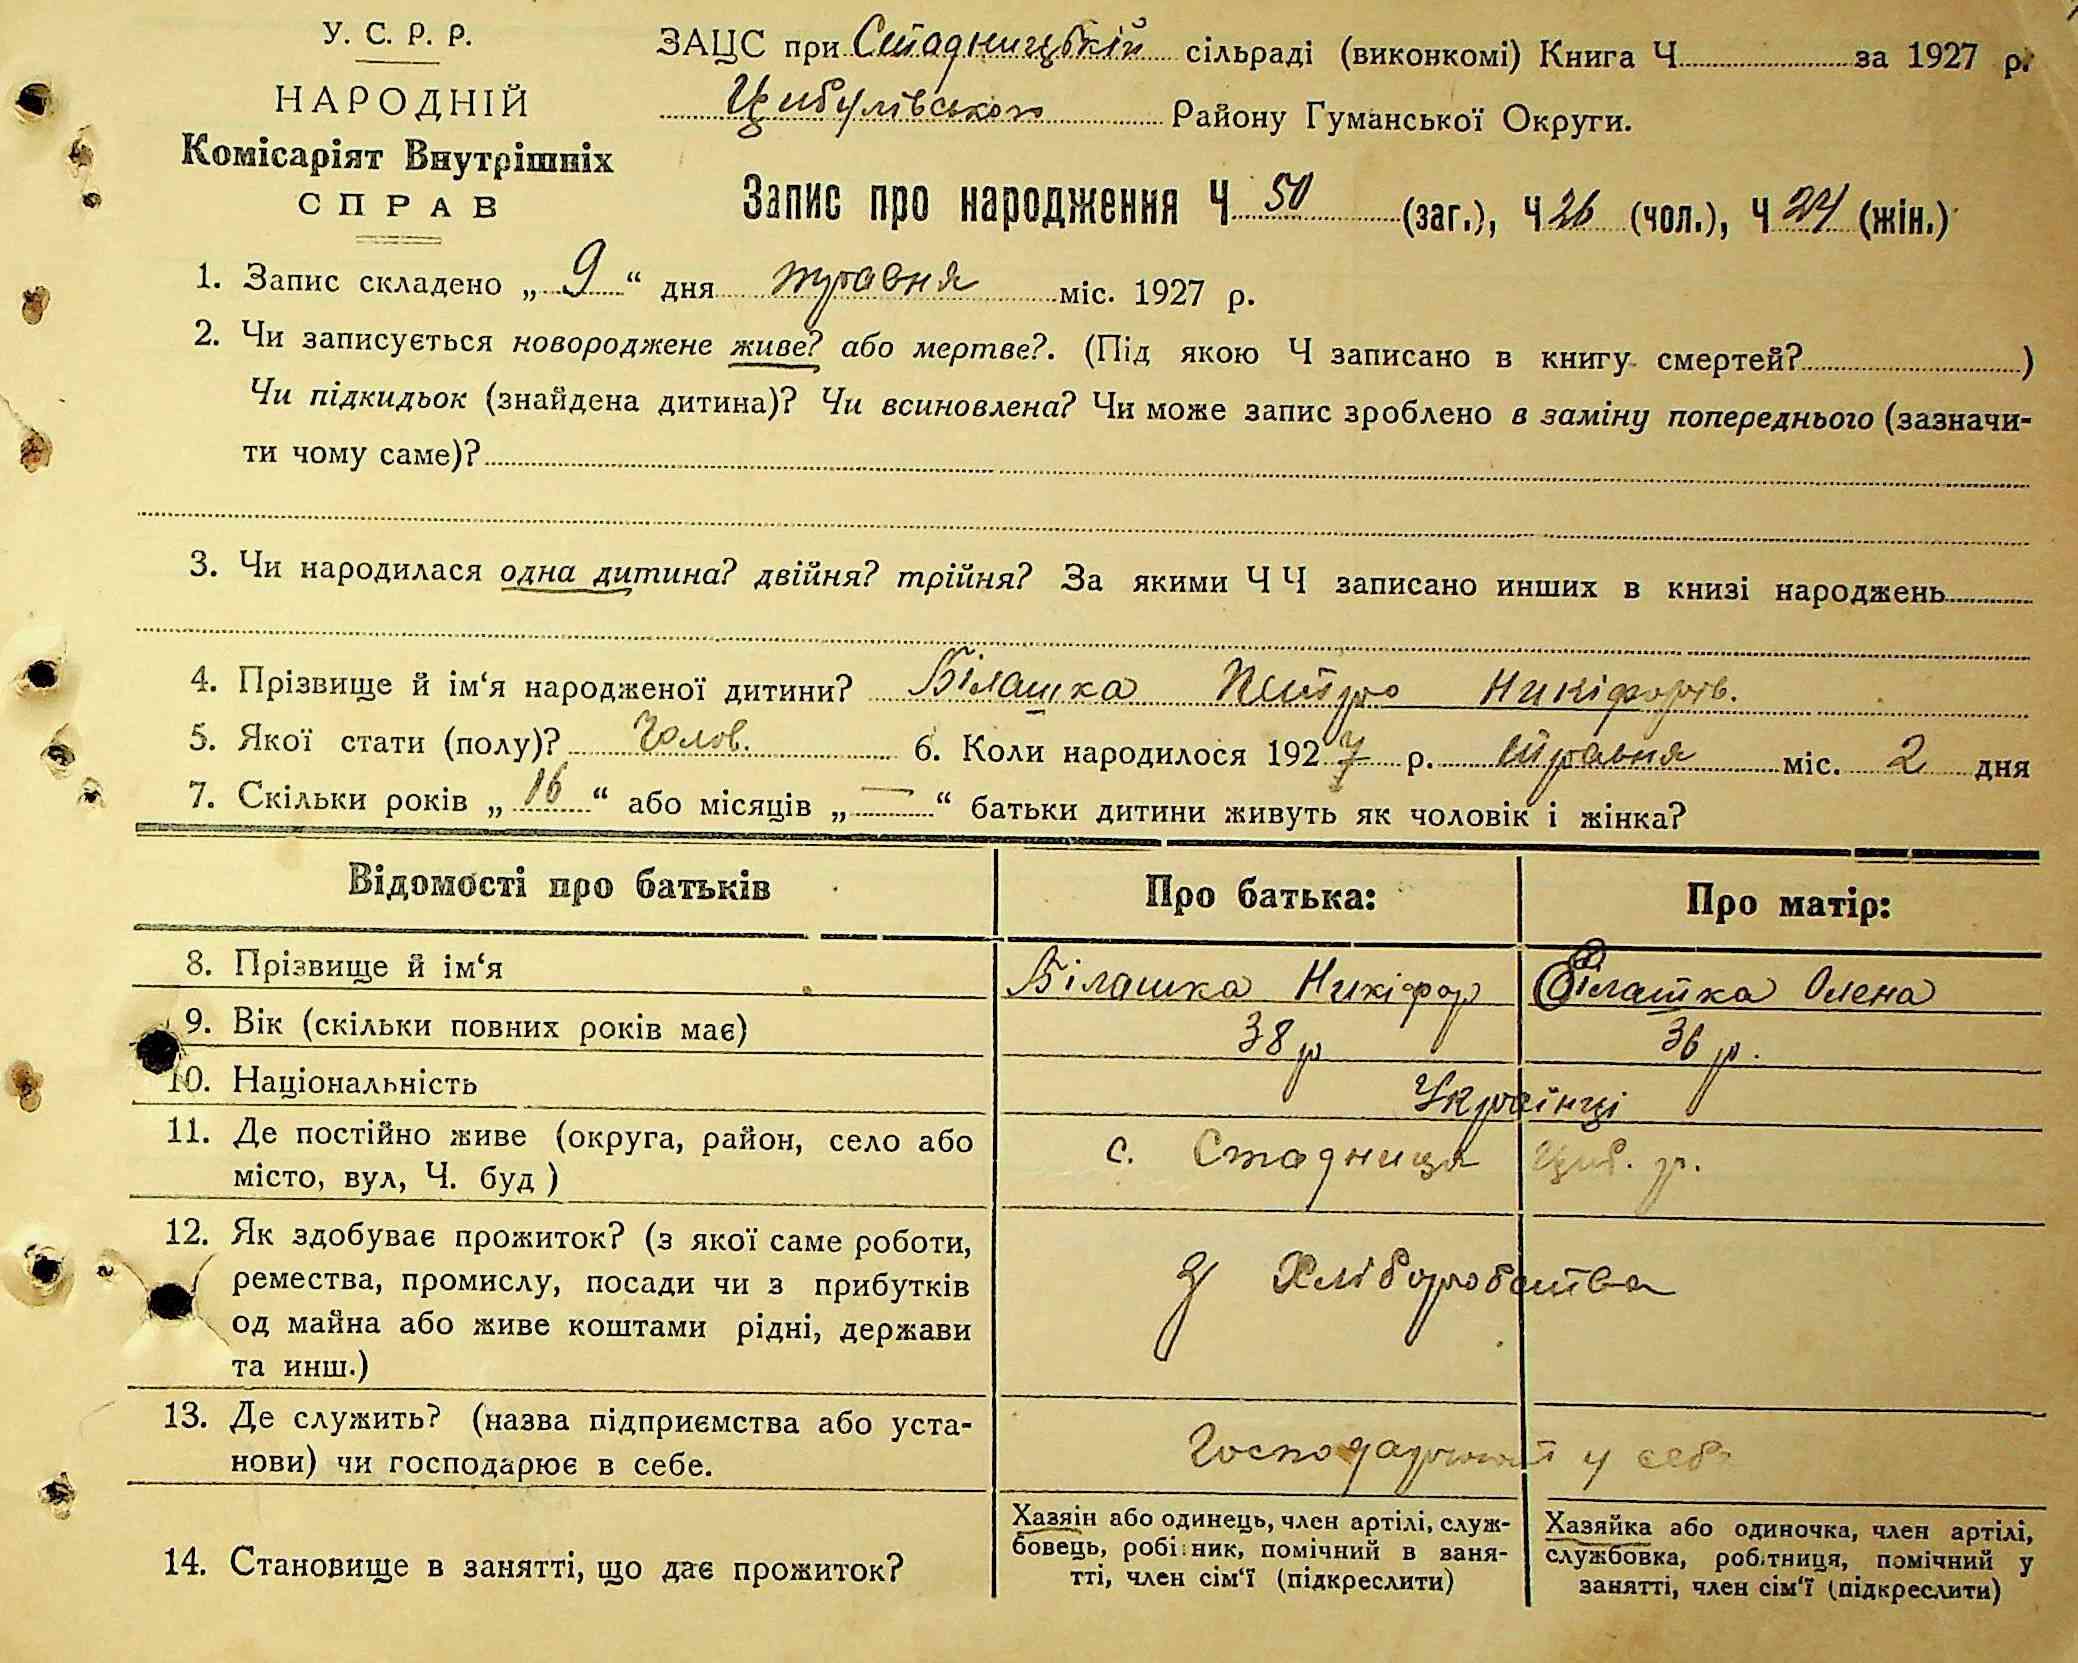 У. С. Р. Р.
НАРОДНІЙ
Комісаріят Внутрішніх
СПРАВ
ЗАЦС при Стадницькій сільраді (виконкомі) Книга Ч. за 1927 р.
Цибулівського Району Гуманської Округи.
Запис про народження Ч 50 (заг.), Ч 26 (чол.), Ч 24 (жін.)
1. Запис складено „ 9 “ дня травня міс. 1927 р.
2. Чи записується новороджене живе? або мертве?. (Під якою Ч записано в книгу смертей? )
Чи підкидьок (знайдена дитина)? Чи всиновлена? Чи може запис зроблено в заміну попереднього (зазначи-
ти чому саме)?
3. Чи народилася одна дитина? двійня? трійня? За якими Ч Ч записано инших в книзі народжень
4. Прізвище й ім‘я народженої дитини? Білашка Петро Никіфорів.
5. Якої стати (полу)? Чолов. 6. Коли народилося 1927 р. травня міс. 2 дня
7. Скільки років „ 16 “ або місяців „ — “ батьки дитини живуть як чоловік і жінка?
Відомості про батьків Про батька: Про матір:
8. Прізвище й ім‘я Білашка Никіфор Білашка Олена
9. Вік (скільки повних років має) 38 р 36 р.
10. Національність Українці
11. Де постійно живе (округа, район, село або
місто, вул, Ч. буд ) с. Стадниця Циб. р.
12. Як здобуває прожиток? (з якої саме роботи,
ремества, промислу, посади чи з прибутків
од майна або живе коштами рідні, держави
та инш.)
З Хліборобства
13. Де служить? (назва підприємства або уста-
нови) чи господарює в себе.
Господарюють у себе
14. Становище в занятті, що дає прожиток?
Хазяін або одинець, член артілі, служ-
бовець, робітник, помічний в заня-
тті, член сім‘ї (підкреслити)
Хазяйка або одиночка, член артілі,
службовка, робітниця, помічний у
занятті, член сім‘ї (підкреслити)